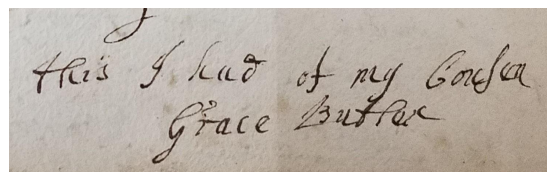 this I had of my Cousen
Grace Butler